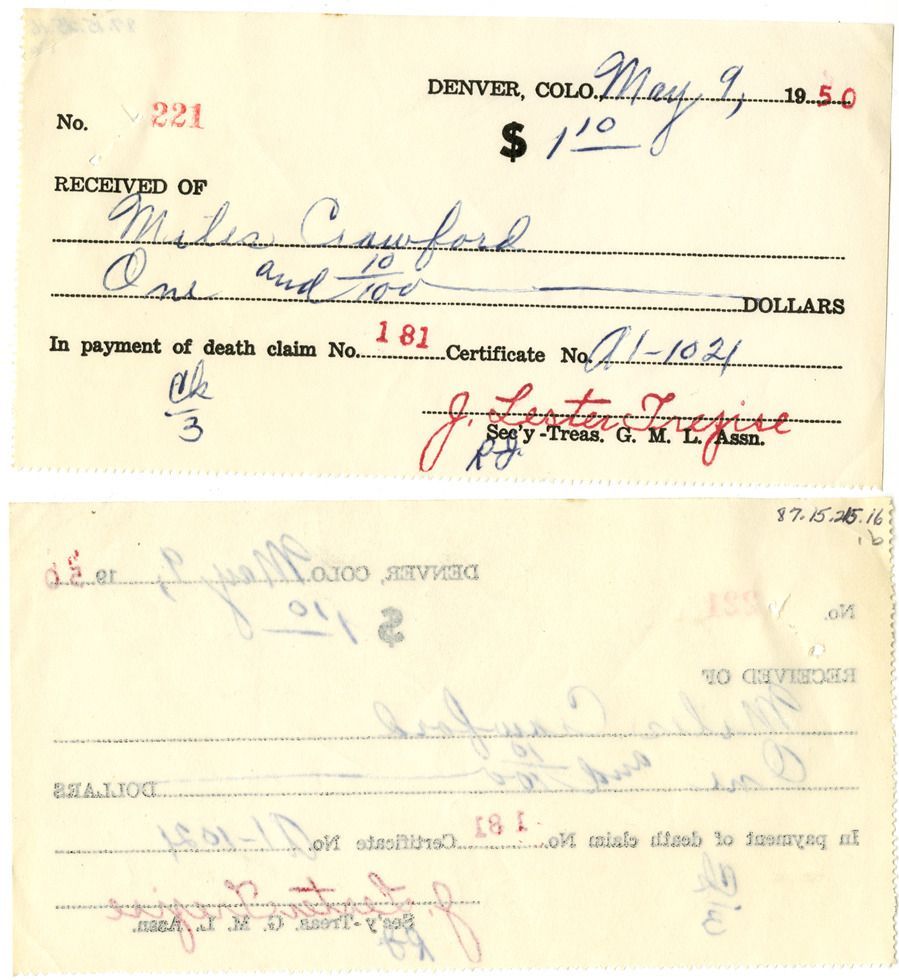 DENVER, COLO. May 9, 19 50
No. 221
$ 1 10
RECEIVED OF
Miles Crawford
One and 10/100 DOLLARS
In payment of death claim No. 181 Certificate No. A1-1021
Ck
3
J. Lester Trezise
Sec'y-Treas. G. M. L. Assn.
RJ.
87.15.215.16